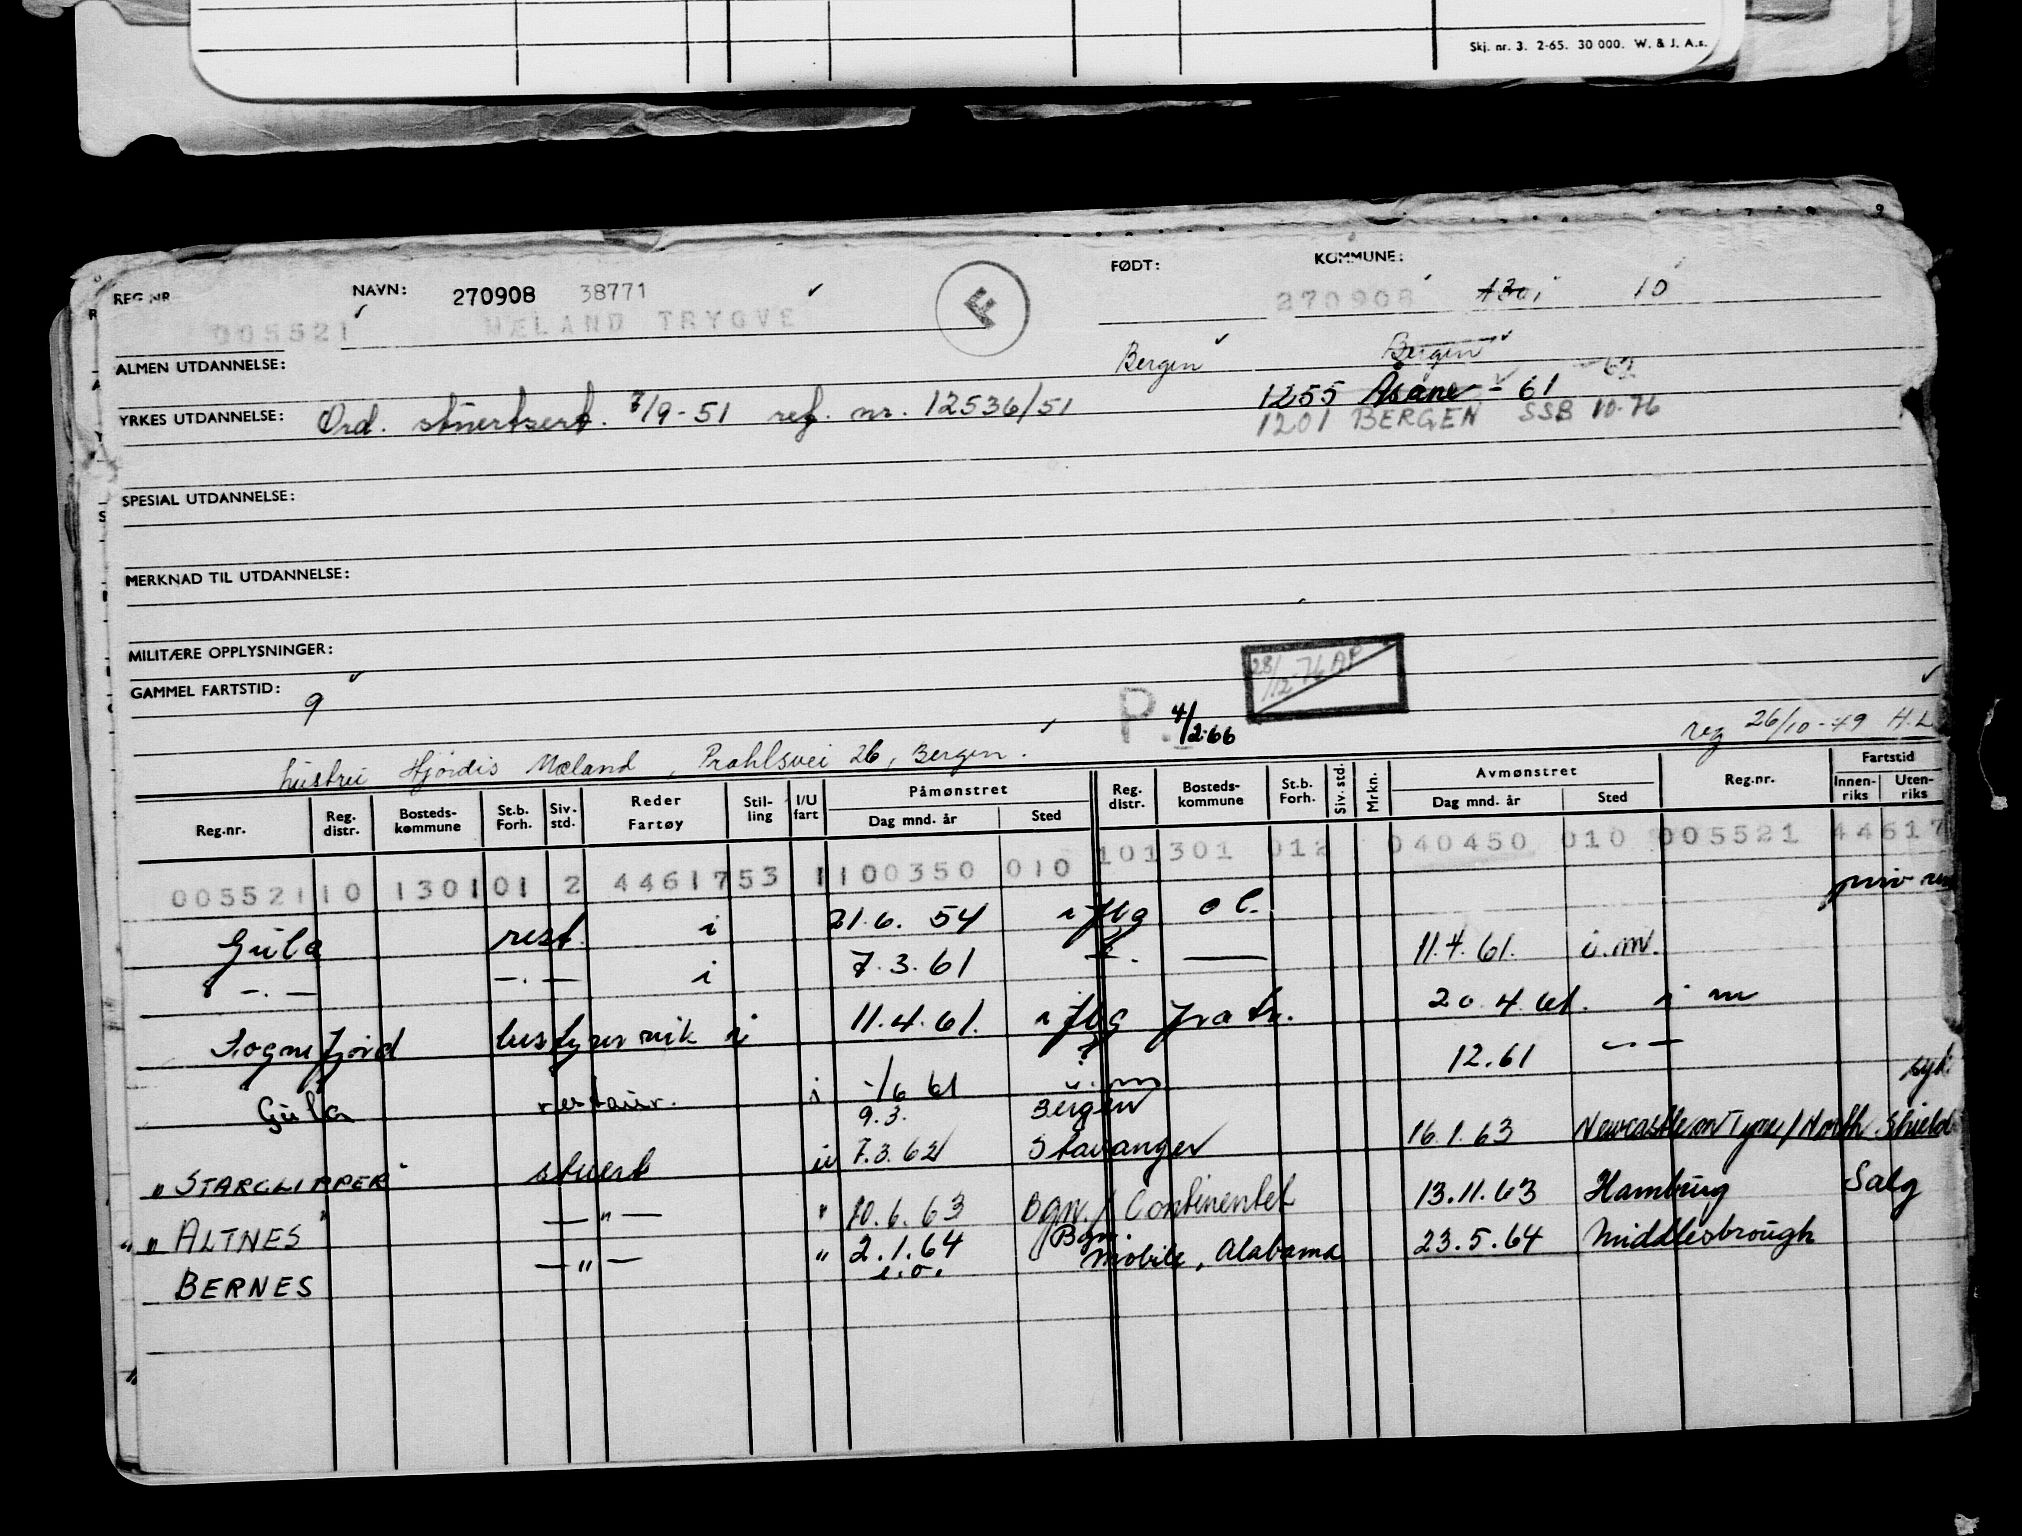 Skj. nr. 3. 2-65. 30 000. W. & J. A.s.
REG NR NAVN: 270908 38771 FØDT: KOMMUNE:
005521 MÆLAND TRYGVE F 270908 1301 10
ALMEN UTDANNELSE: Bergen Bergen
YRKES UTDANNELSE: Ord. stuertsert. 7/9-51 ref. nr. 12536/51 1255 Åsane - 61 62
1201 BERGEN SSB 10-76
SPESIAL UTDANNELSE:
MERKNAD TIL UTDANNELSE:
MILITÆRE OPPLYSNINGER:
28/12-76 AP
GAMMEL FARTSTID: 9
P. 4/2-66 reg 26/10-49 H.L
hustru Hjördis Mæland, Prahlsvei 26, Bergen.
Reg.nr. Reg. distr. Bosteds-kommune St.b. Forh. Siv. std. Reder Fartøy Stil-ling I/U fart Påmønstret Dag mnd. år Sted Reg. distr. Bosteds-kommune St.b. Forh. Siv. std. Mrkn. Avmønstret Dag mnd. år Sted Reg.nr. Fartstid Innen-riks Uten-riks
005521 10 1301 01 2 4461753 1 100350 010 101301 012 040450 010 005521 44617
Gula rest. i 21.6. 54 i flg ol. priv
— . — — . — i 7.3.61 — 11.4.61. i.m.
Sognefjord bestyrer vik i 11.4.61. i flg 20.4.61. i m
Gula restaur. i -/6 61 ? u.m 12.61 — —
9.3. Bergen syk
"STARCLIPPER" stuert u 7.3.62 Stavanger 16.1.63 Newcastle on Tyne/North Shield
" ALTNES" — " — " 10.6.63 Bgn./Continentet 13.11.63 Hamburg Salg
" BERNES — " — " 2.1.64 Bgn Mobile, Alabama 23.5.64 Middlesbrough
i.o.